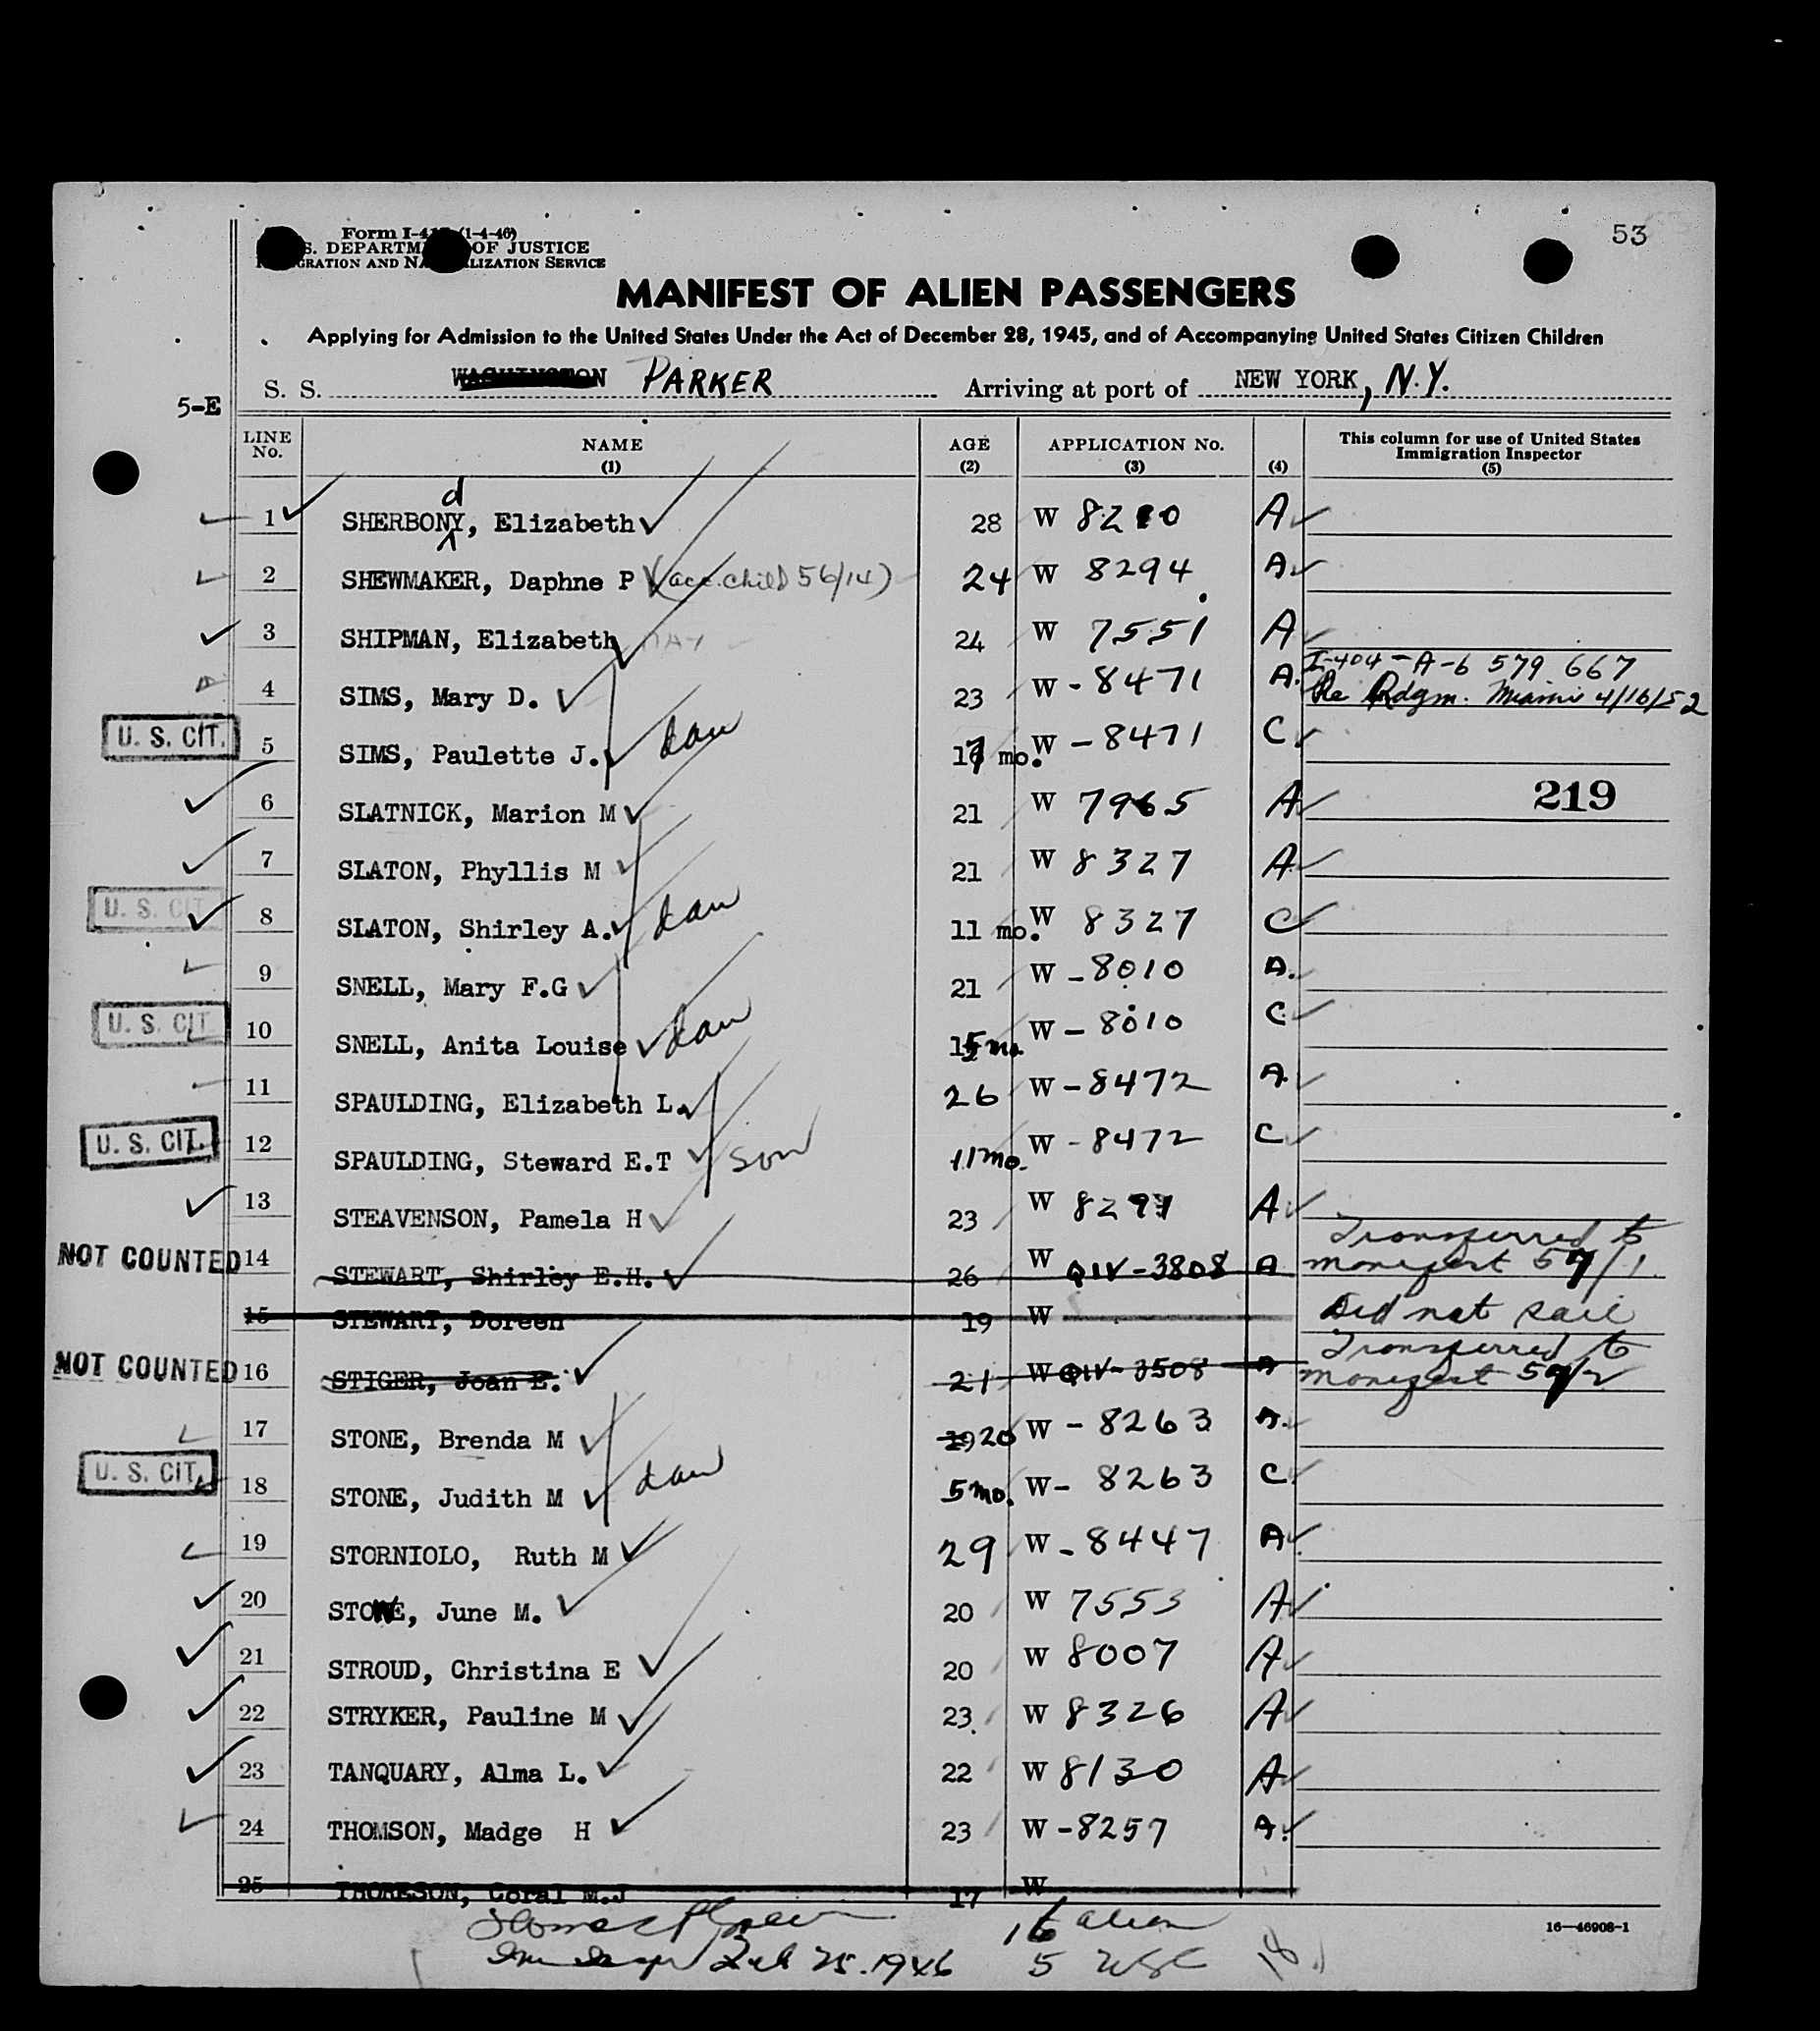 53
Form I-41 (1-4-46)
S. DEPARTM OF JUSTICE
GRATION AND NA LIZATION SERVICE
MANIFEST OF ALIEN PASSENGERS
Applying for Admission to the United States Under the Act of December 28, 1945, and of Accompanying United States Citizen Children
S. S. WASHINGTON PARKER Arriving at port of NEW YORK, N.Y.
5-E
LINE No. NAME (1) AGE (2) APPLICATION No. (3) (4) This column for use of United States Immigration Inspector (5)
1 SHERBONdY, Elizabeth 28 W 8210 A
2 SHEWMAKER, Daphne P (acc. child 56/14) 24 W 8294 A
3 SHIPMAN, Elizabeth MAY 24 W 7551 A
I-404-A-6 579 667
4 SIMS, Mary D. 23 W-8471 A. Re Rdgm. Miami 4/16/52
U. S. CIT. 5 SIMS, Paulette J. dau 17 mo. W-8471 C
6 SLATNICK, Marion M 21 W 7965 A 219
7 SLATON, Phyllis M 21 W 8327 A
U. S. CIT 8 SLATON, Shirley A. dau 11 mo. W 8327 C
9 SNELL, Mary F.G 21 W-8010 A.
U. S. CIT 10 SNELL, Anita Louise dau 15 mo. W-8010 C
11 SPAULDING, Elizabeth L. 26 W-8472 A.
U. S. CIT. 12 SPAULDING, Steward E.T son 11 mo. W-8472 C
13 STEAVENSON, Pamela H 23 W 8291 A
Transferred to
NOT COUNTED 14 STEWART, Shirley E.H. 26 W QIV-3808 A manifest 57/1
15 STEWART, Doreen 19 W Did not sail
Transferred to
NOT COUNTED 16 STIGER, Joan E. 21 W QIV-3508 A manifest 57/2
17 STONE, Brenda M 19 20 W-8263 A.
U. S. CIT. 18 STONE, Judith M dau 5 mo. W-8263 C
19 STORNIOLO, Ruth M 29 W-8447 A
20 STOWE, June M. 20 W 7553 A
21 STROUD, Christina E 20 W 8007 A
22 STRYKER, Pauline M 23 W 8326 A
23 TANQUARY, Alma L. 22 W 8130 A
24 THOMSON, Madge H 23 W-8257 A.
25 THORESON, Coral M.J 17 W
16 alien
Feb 25. 1946 5 USC
16—46908-1